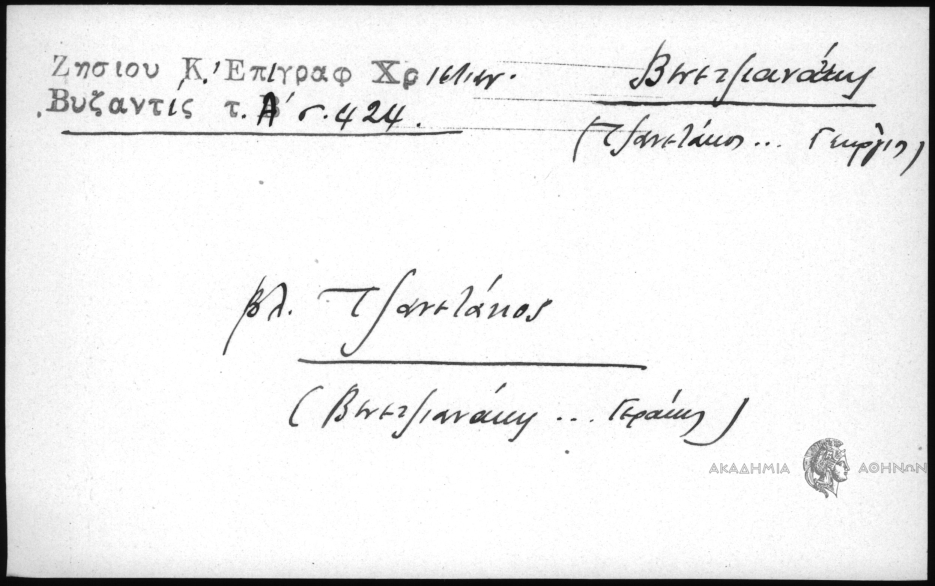 Ζησιου Κ. Ἐπιγραφ Χριστιαν.
Βυζαντὶς τ. Α' σ. 424.
Βενετζιανάκης
(Τζανετάκος ... Γεώργιος)
βλ. Τζανετάκος
(Βενετζιανάκης ... Γεράκης)
ΑΚΑΔΗΜΙΑ ΑΘΗΝΩΝ